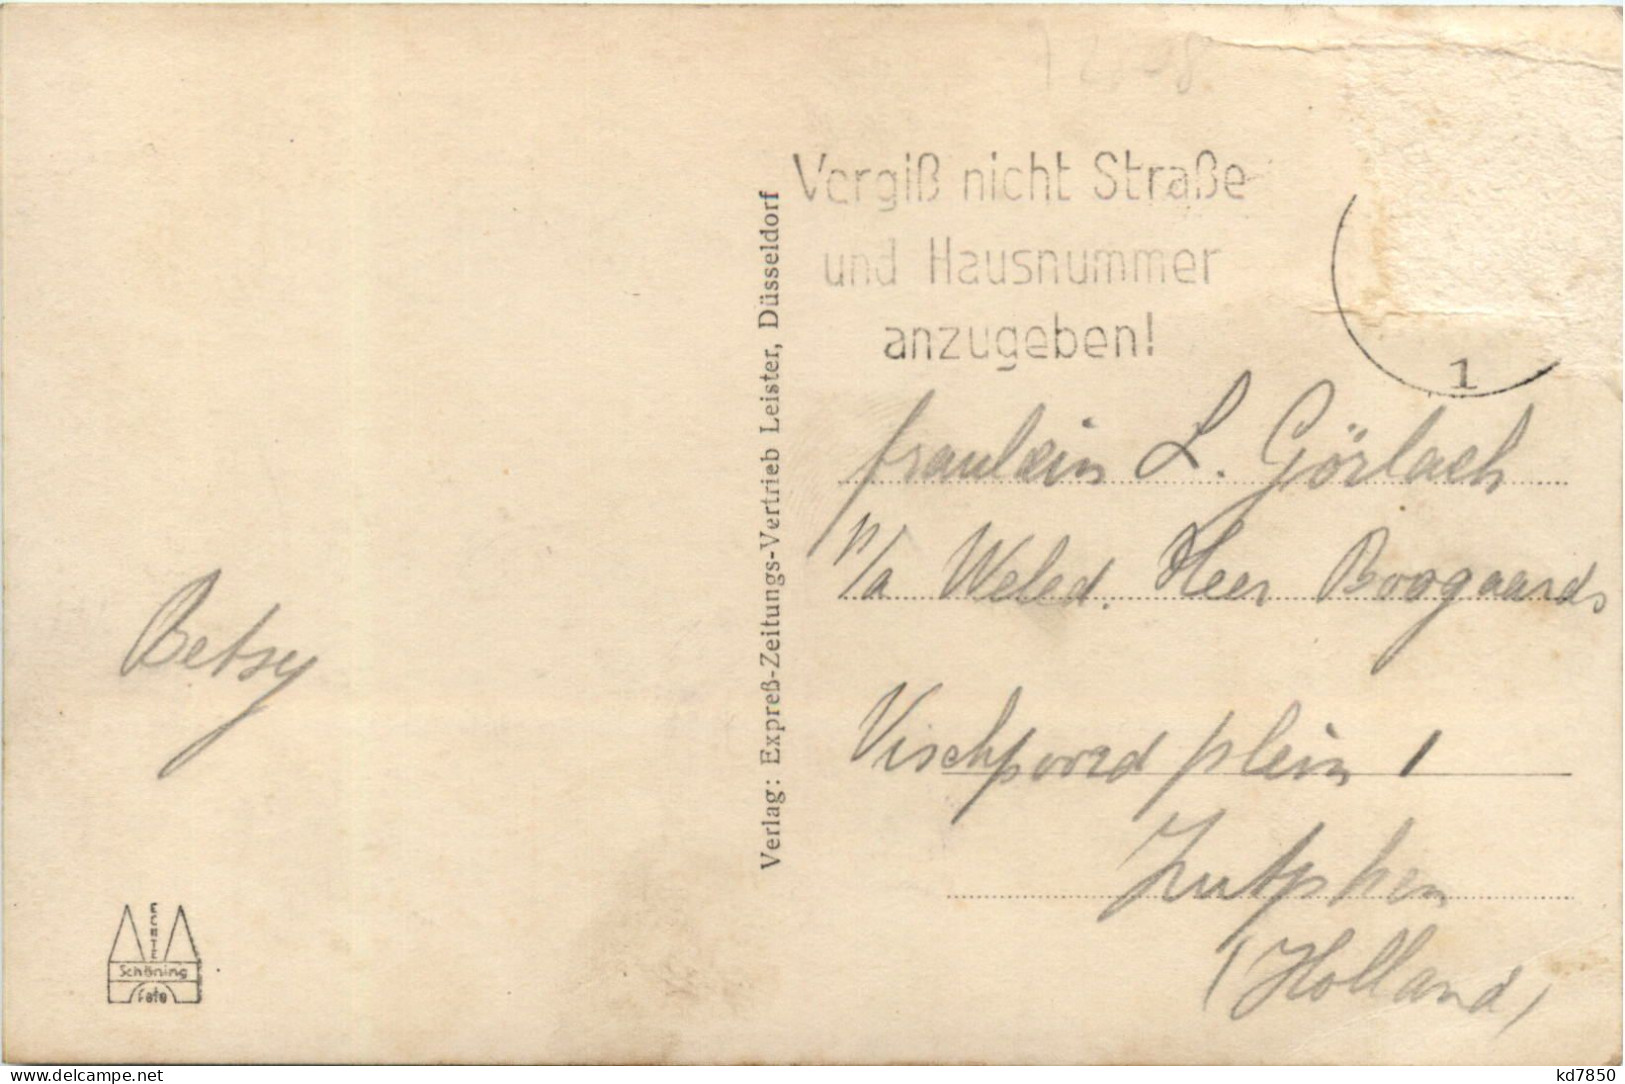 Vergiß nicht Straße
und Hausnummer
anzugeben!
1
Verlag: Expreß-Zeitungs-Vertrieb Leister, Düsseldorf
Fraulein L. Görlach
p/a Weled. Heer Boogaards
Vischpoord plein 1
Zutphen
(Holland)
Betsy
ECHTE
Schöning
Foto
www.delcampe.net
kd7850